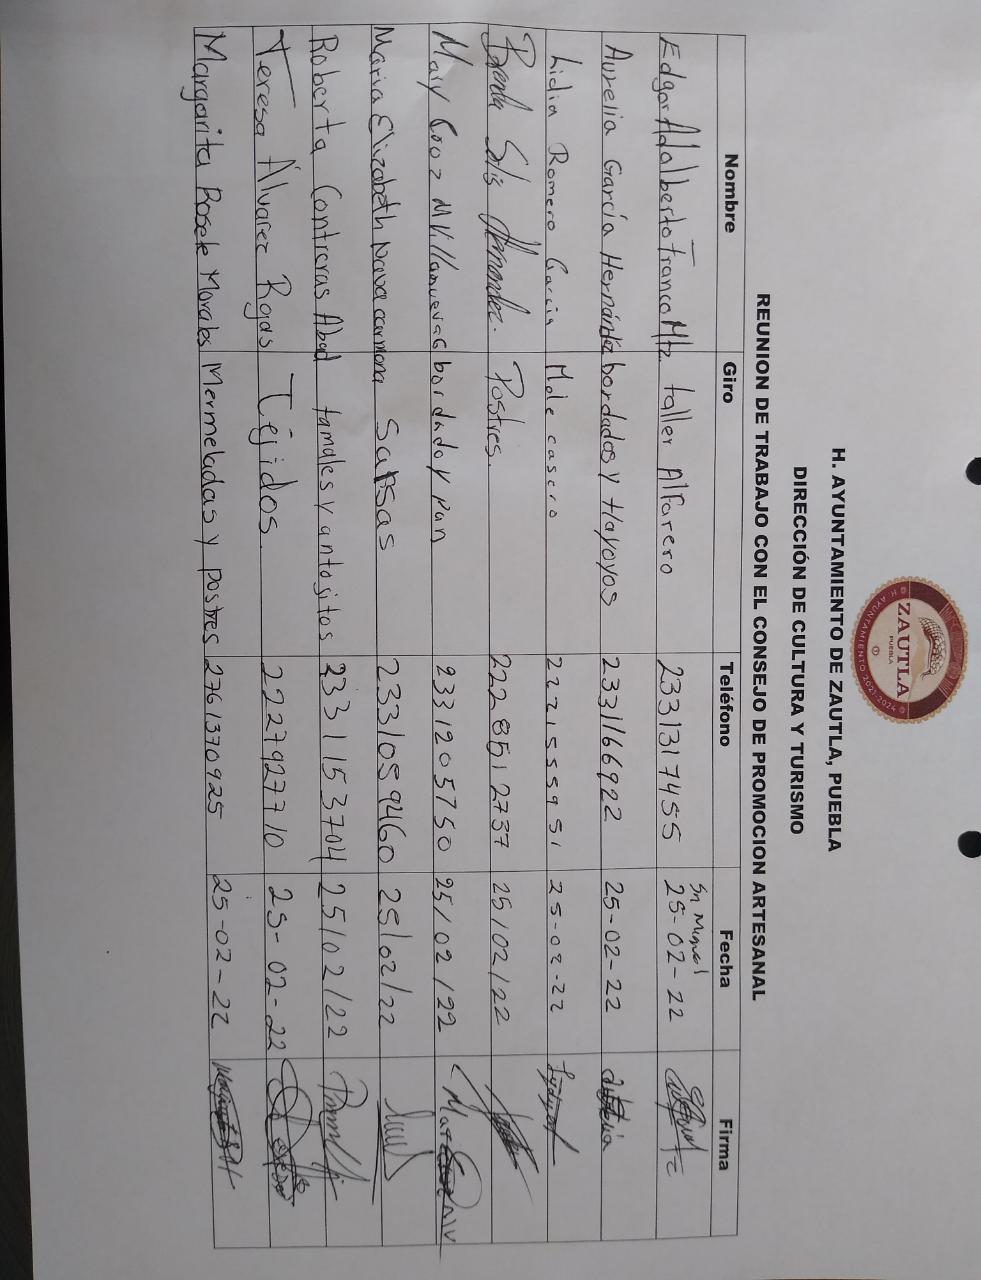 ZAUTLA
PUEBLA
H. AYUNTAMIENTO 2021-2024
H. AYUNTAMIENTO DE ZAUTLA, PUEBLA
DIRECCIÓN DE CULTURA Y TURISMO
REUNION DE TRABAJO CON EL CONSEJO DE PROMOCION ARTESANAL
Nombre Giro Teléfono Fecha Firma
Edgar Adalberto Franco Mtz. taller Alfarero 2331317455 Sn Miguel 25-02-22
Aurelia García Hernández bordados y tlayoyos 2331166922 25-02-22
Lidia Romero Garcia Mole casero 2221555951 25-02-22
Brenda Solis Hernandez. Postres. 222 851 2737 25/02/22
Mary Cruz M Villanueva C bordado y pan 2331205750 25/02/22
Maria Elizabeth Nava carmona Salsas 2331059460 25/02/22
Roberta Contreras Abad tamales y antojitos 2331153704 25/02/22
Teresa Álvarez Rojas Tejidos. 2227927710 25-02-22
Margarita Rosete Morales Mermeladas y postres 2761370925 25-02-22